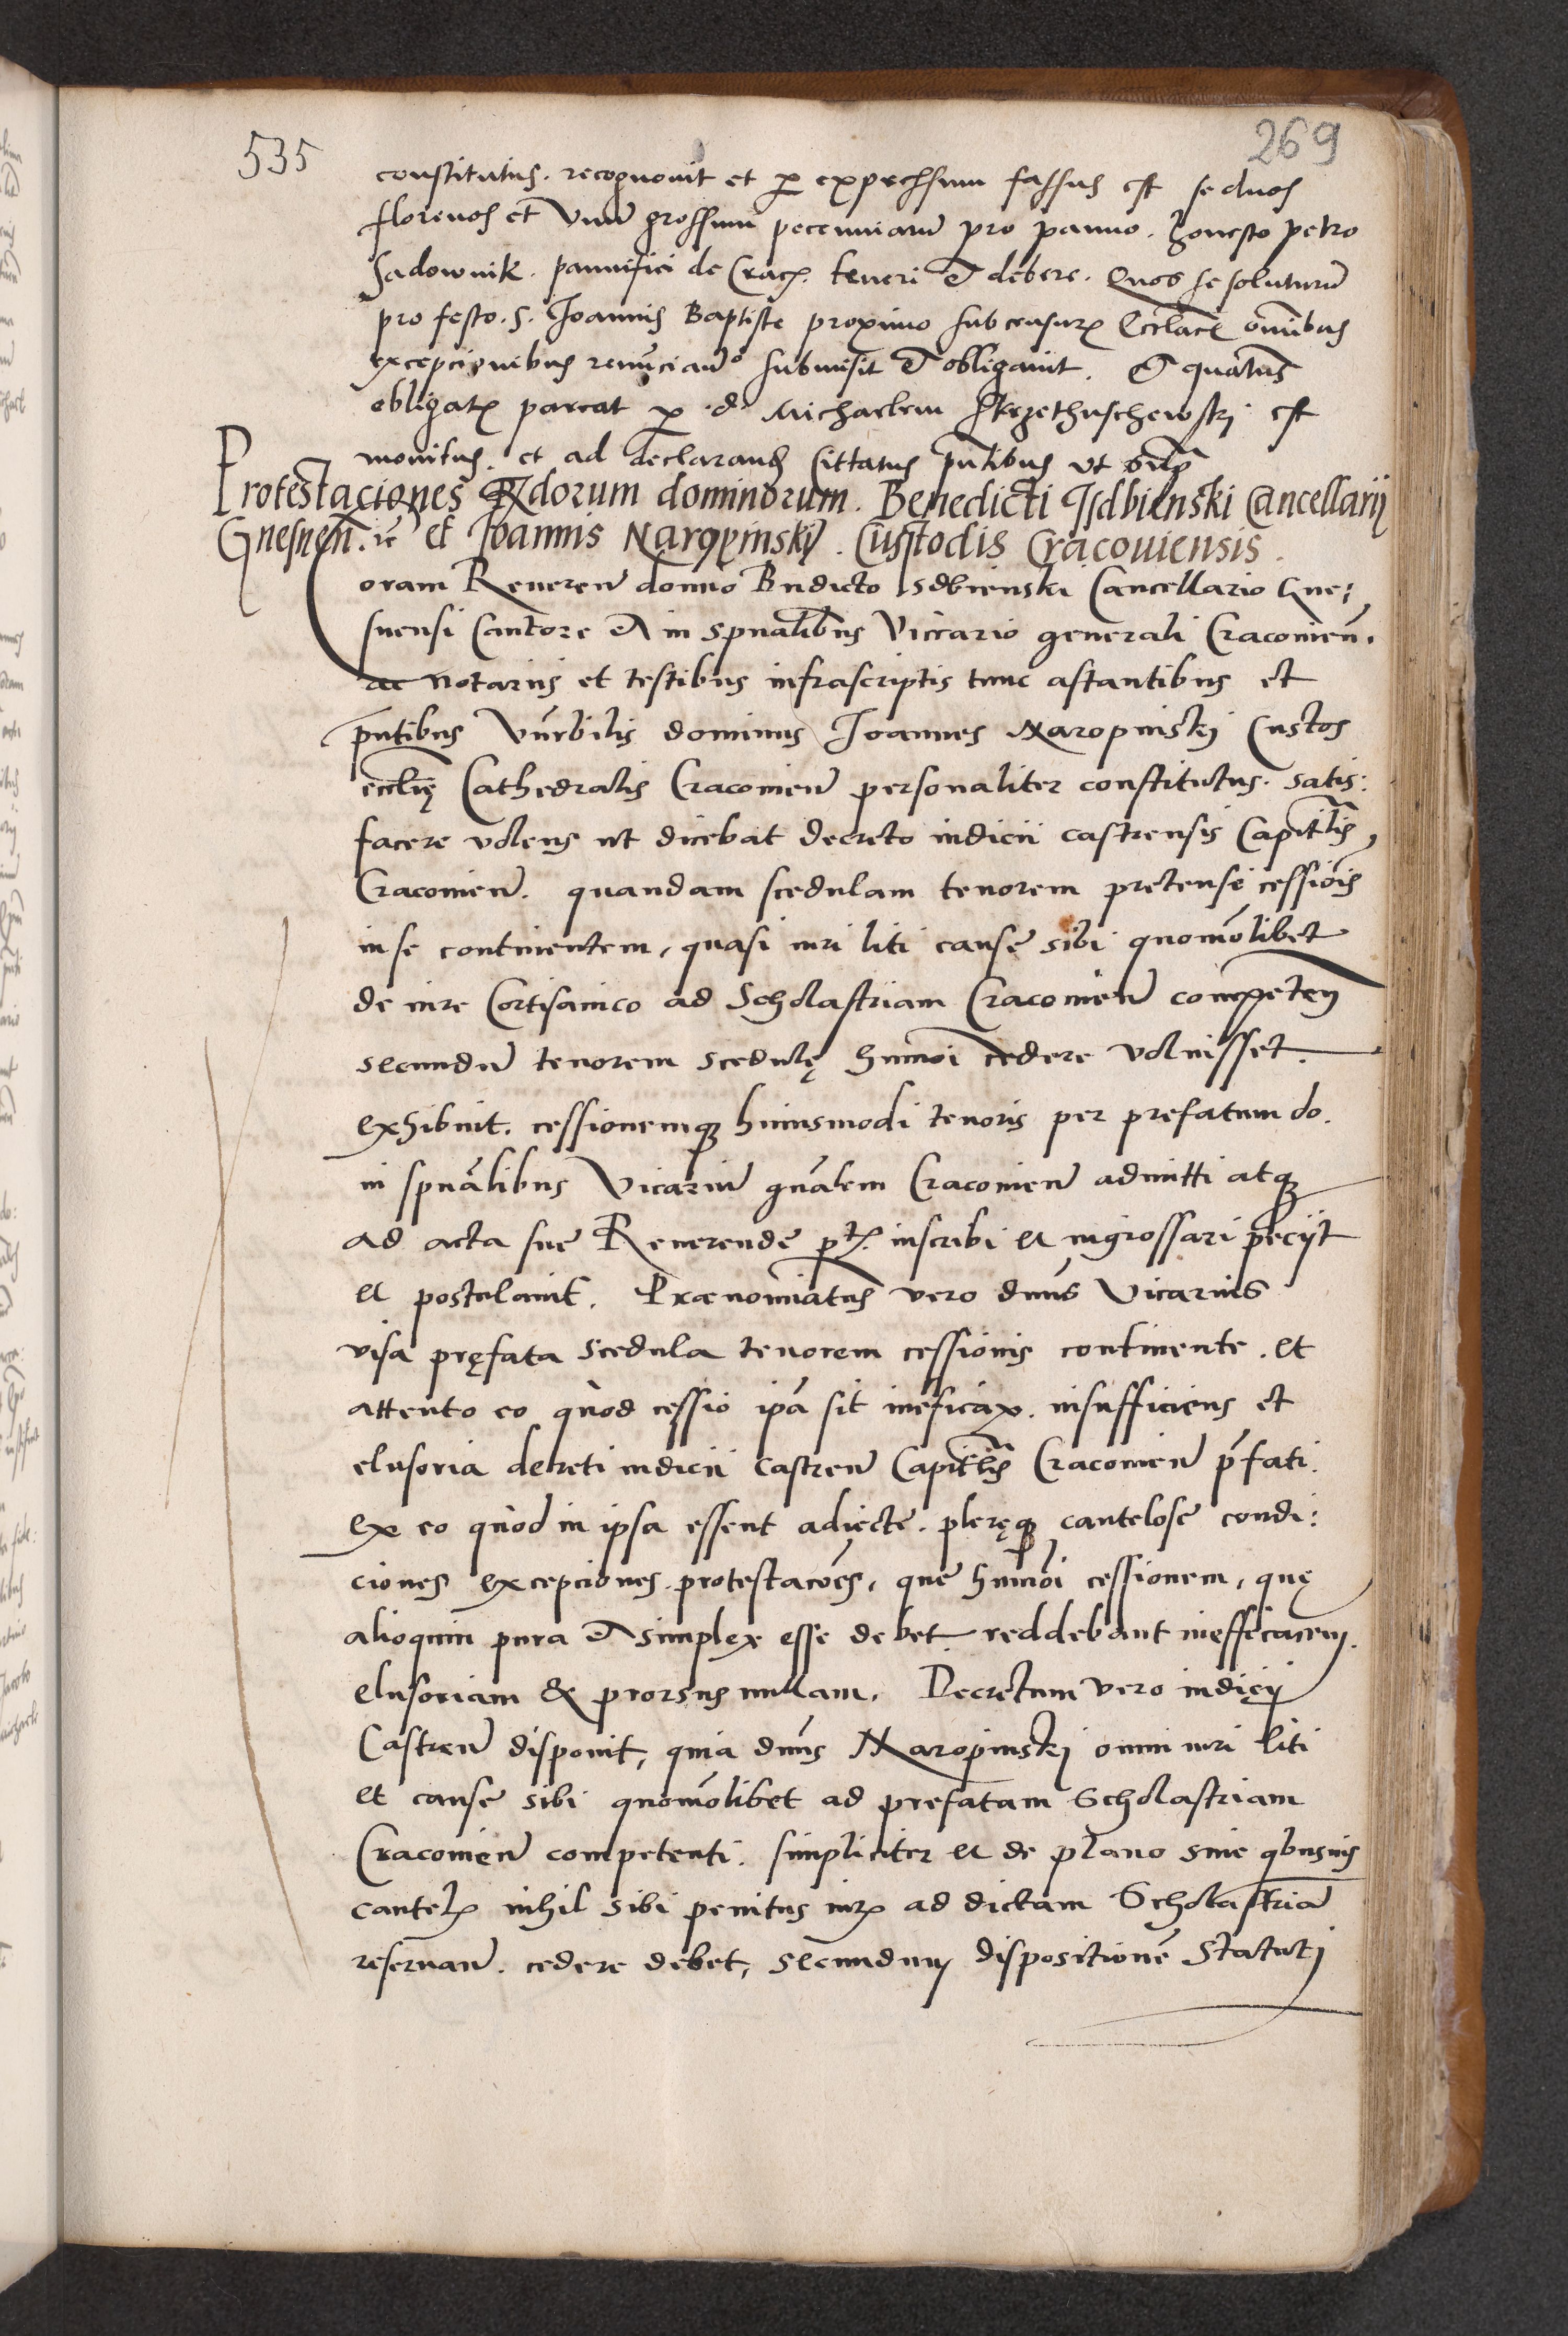 535
269
constitutus. recognovit et p expressum fassus est se duos
florenos et Vnu grossum pecuniaru pro panno. honesto Petro
Sadownik. pannifici de Crac. teneri et debere. Quos se soluturu
pro festo. S. Joannis Baptiste proximo sub censur Ecclace omibus
excepcionibus renunciando submisit et obligavit. Et quatus
obligat pareat p. d. Michaelem Skrzethuschewski est
monitus. et ad declarand Cittatus pntibus ut supra
Protestaciones Rdorum dominorum. Benedicti Isdbienski Cancellarij
Gnesnen. zc et Joannis Naropinskÿ. Custodis Cracouiensis.
Coram Reueren domno Bndicto Isdbienski Cancellario Gne:
snensi Cantore et in spualibus Viccario generali Cracouien.
ac notariis et testibus infrascriptis tunc astantibus et
pntibus Vnrbilis dominus Joannes Naropinskj Custos
ecclię Cathedralis Cracouien personaliter constitutus. satis:
facere volens ut dicebat decreto iudicii castrensis Capitlis
Cracouien. quandam scedulam tenorem pretense cessiois
in se continentem, quasi iuri liti cause sibi quomolibet
de iure Cortisanico ad Scholastriam Cracouien competen
secundu tenorem scedulę huiusmoi cedere voluisset.
exhibuit. cessionemq huiusmodi tenoris per prefatum do.
in spualibus Vicariu gnalem Cracouien admitti atq
ad acta sue Reuerende pt. inscribi et ingrossari peciit
et postulauit. Prænominatus vero dnus Vicarius
visa pręfata scedula tenorem cessionis continente. et
attento eo quod cessio ipa sit ineficax. insufficiens et
elusoria decreti iudicii castren Capitlis Cracouien pfati.
ex eo quod in ipsa essent adiecte. pleręq cautelose condi:
ciones excepciones. protestacoes, que huiusmoi cessionem, quę
alioquin pura et simplex esse debet reddebant inefficacem.
elusoriam & prorsus nullam. Decretum vero iudicij
Castren disponit, quia dnus Naropinskj omni iuri liti
et cause sibi quomolibet ad prefatam Scholastriam
Cracouien competenti. simpliciter et de plano sine qbusuis
cautel nihil sibi penitus iur ad dictam Scholastria
reseruan. cedere debet, secundum dispositione Statutj